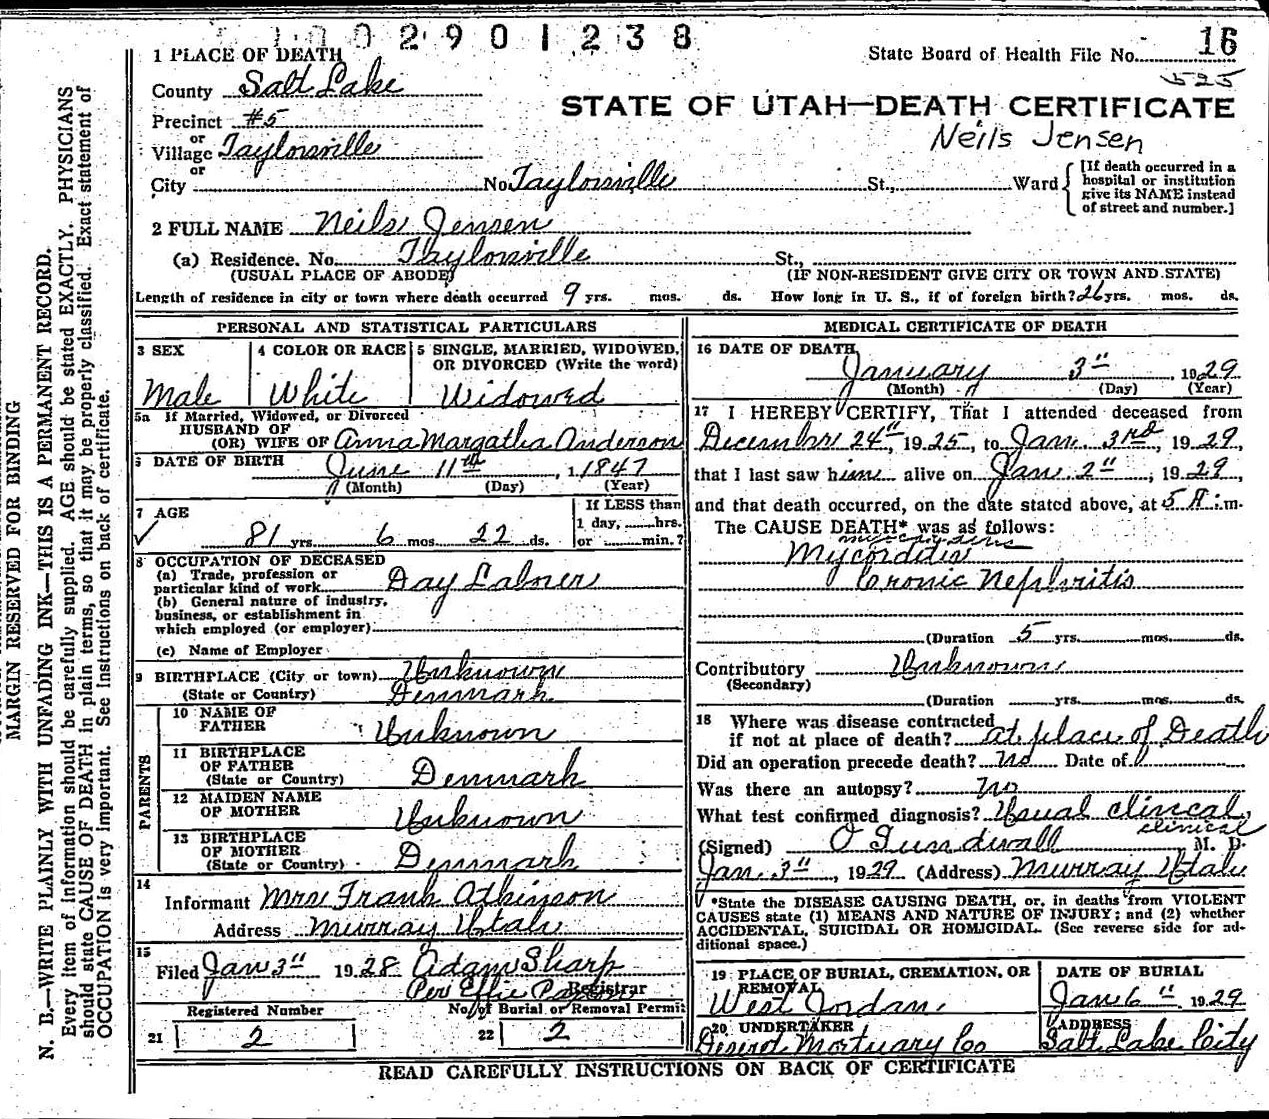 1002901238
1 PLACE OF DEATH
State Board of Health File No. 16
525
County Salt Lake
STATE OF UTAH—DEATH CERTIFICATE
Precinct #5
Neils Jensen
or
Village Taylorsville
or
City No Taylorsville St., Ward
[If death occurred in a
hospital or institution
give its NAME instead
of street and number.]
2 FULL NAME Neils Jensen
(a) Residence. No. Taylorsville St.,
(USUAL PLACE OF ABODE) (IF NON-RESIDENT GIVE CITY OR TOWN AND STATE)
Length of residence in city or town where death occurred 9 yrs. mos. ds. How long in U. S., if of foreign birth? 26 yrs. mos. ds.
PERSONAL AND STATISTICAL PARTICULARS
3 SEX
Male
4 COLOR OR RACE
White
5 SINGLE, MARRIED, WIDOWED,
OR DIVORCED (Write the word)
Widowed
5a If Married, Widowed, or Divorced
HUSBAND OF
(OR) WIFE OF Anna Margatha Anderson
6 DATE OF BIRTH June 11th, 1847
(Month) (Day) (Year)
7 AGE
81 yrs. 6 mos. 22 ds.
If LESS than
1 day, hrs.
or min.?
8 OCCUPATION OF DECEASED
(a) Trade, profession or
particular kind of work Day Laborer
(b) General nature of industry,
business, or establishment in
which employed (or employer)
(c) Name of Employer
9 BIRTHPLACE (City or town) Unknown
(State or Country) Denmark
PARENTS
10 NAME OF
FATHER Unknown
11 BIRTHPLACE
OF FATHER
(State or Country) Denmark
12 MAIDEN NAME
OF MOTHER Unknown
13 BIRTHPLACE
OF MOTHER
(State or Country) Denmark
14
Informant Mrs Frank Atkinson
Address Murray Utah
15
Filed Jan 3", 1928 Adam Sharp
Per Effie
Registrar
Registered Number
21 2
No. of Burial or Removal Permit
22 2
MEDICAL CERTIFICATE OF DEATH
16 DATE OF DEATH
January 3", 1929
(Month) (Day) (Year)
17 I HEREBY CERTIFY, That I attended deceased from
December 24", 1925, to Jan. 3rd, 1929,
that I last saw him alive on Jan 2", 1929,
and that death occurred, on the date stated above, at 5 A.m.
The CAUSE DEATH* was as follows:
Mycorditis
Cronic Nephritis
(Duration 5 yrs. mos. ds.
Contributory Unknown
(Secondary)
(Duration yrs. mos. ds.
18 Where was disease contracted
if not at place of death? at place of Death
Did an operation precede death? No Date of
Was there an autopsy? No
What test confirmed diagnosis? Usual clinical
clinical
(Signed) O Sundwall M. D.
Jan. 3", 1929 (Address) Murray Utah
*State the DISEASE CAUSING DEATH, or, in deaths from VIOLENT
CAUSES state (1) MEANS AND NATURE OF INJURY; and (2) whether
ACCIDENTAL, SUICIDAL OR HOMICIDAL. (See reverse side for ad-
ditional space.)
19 PLACE OF BURIAL, CREMATION, OR
REMOVAL
West Jordan
DATE OF BURIAL
Jan 6", 1929
20 UNDERTAKER
Deseret Mortuary Co
ADDRESS
Salt Lake City
READ CAREFULLY INSTRUCTIONS ON BACK OF CERTIFICATE
MARGIN RESERVED FOR BINDING
N. B.—WRITE PLAINLY WITH UNFADING INK—THIS IS A PERMANENT RECORD.
Every item of information should be carefully supplied. AGE should be stated EXACTLY. PHYSICIANS
should state CAUSE OF DEATH in plain terms, so that it may be properly classified. Exact statement of
OCCUPATION is very important. See instructions on back of certificate.